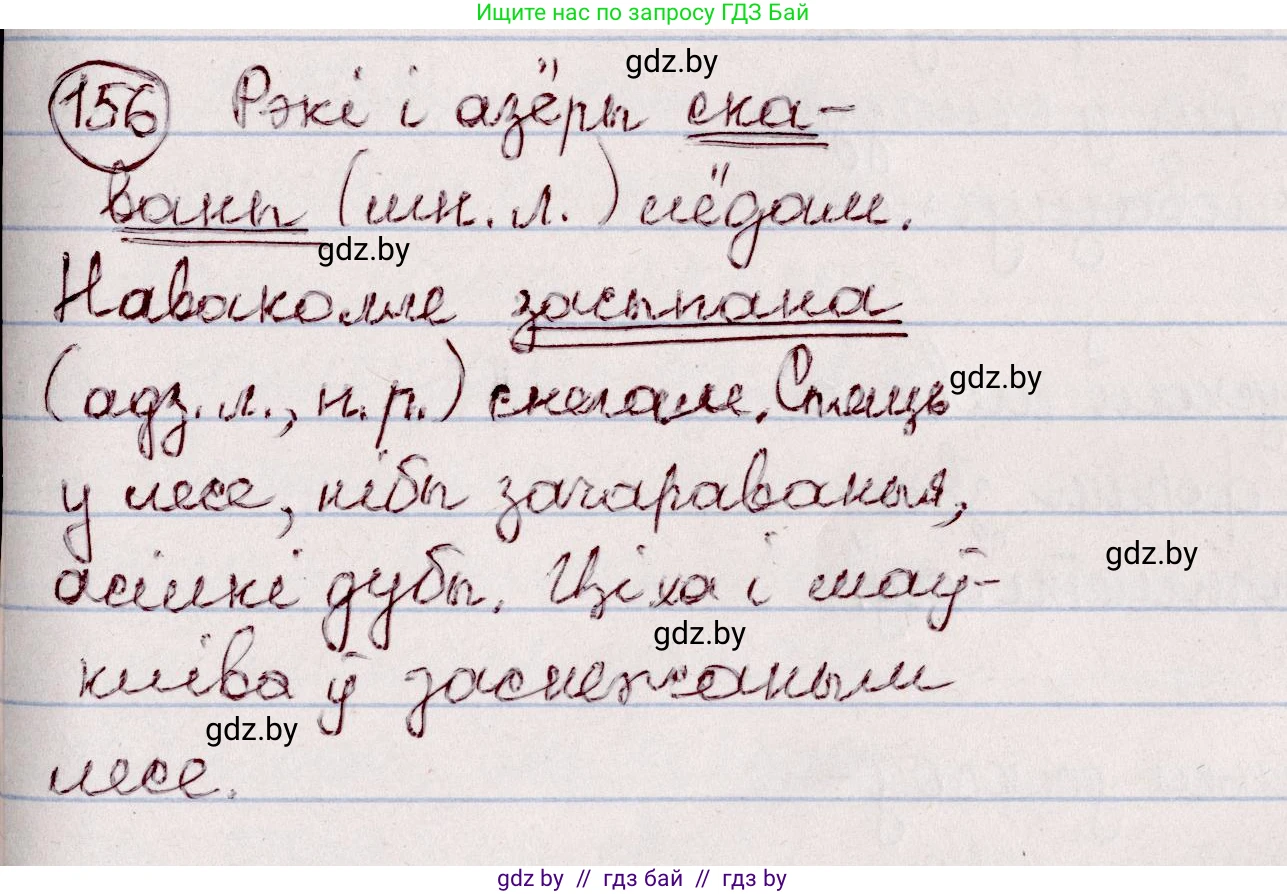 Ищите нас по запросу ГДЗ Бай
gdz.by
156 Рэкі і азёры ска-
ваны (мн. л.) лёдам.
gdz.by
Наваколле засыпана
(адз. л., н. р.) снегам. Спяць
gdz.by
у лесе, нібы зачараваныя,
асілкі дубы. Ціха і маў-
gdz.by
gdz.by
кліва ў заснежаным
gdz.by
лесе.
gdz by // гдз бай // гдз by